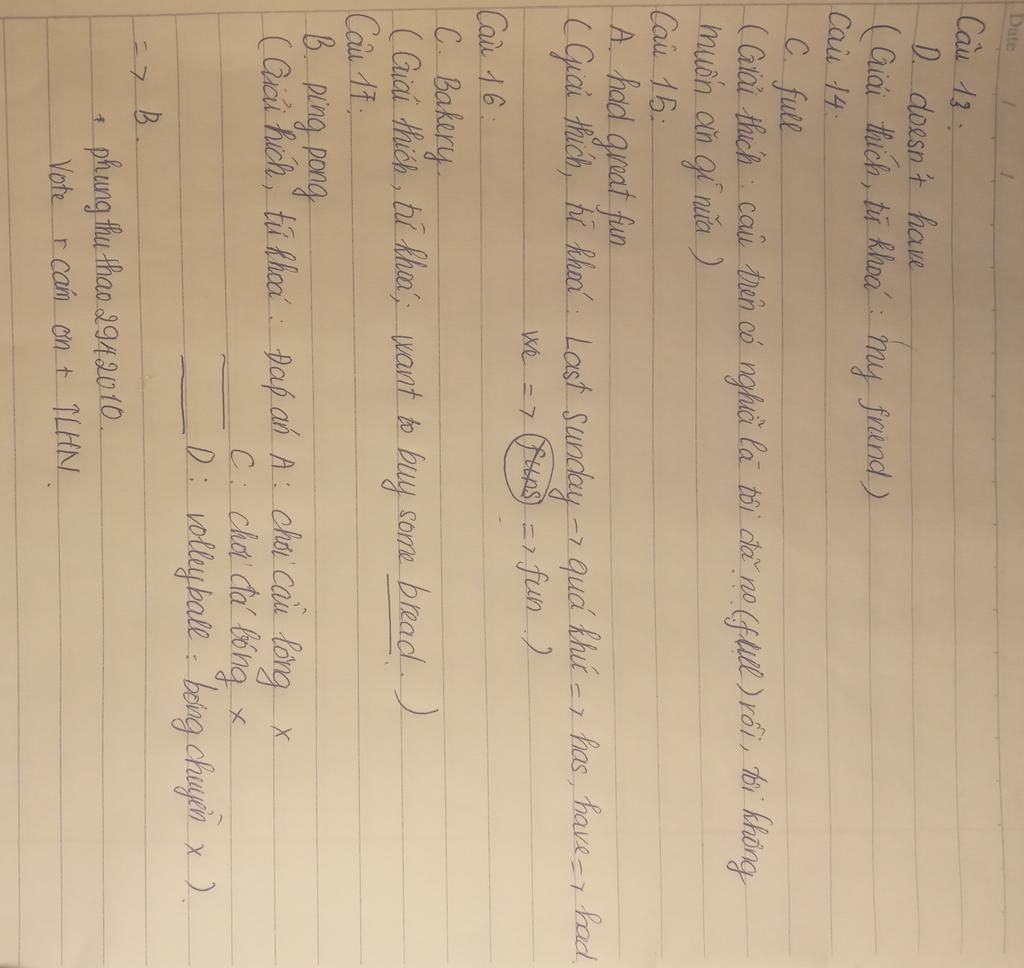 Date / /
Câu 13:
D. doesn't have
(Giải thích, từ khoá: my friend)
Câu 14.
C. full
(Giải thích: câu trên có nghĩa là tôi đã no (full) rồi, tôi không
muốn ăn gì nữa)
Câu 15:
A. had great fun
(Giải thích, từ khoá: Last Sunday → quá khứ => has, have => had
we => funs => fun)
Câu 16:
C. Bakery.
(Giải thích, từ khoá: want to buy some bread.)
Câu 17:
B. ping pong
(Giải thích, từ khoá: Đáp án A: chơi cầu lông x
C: chơi đá bóng x
D: volleyball: bóng chuyền x).
=> B.
+ phungthuthao2942010.
Vote r cảm ơn + TLHN.